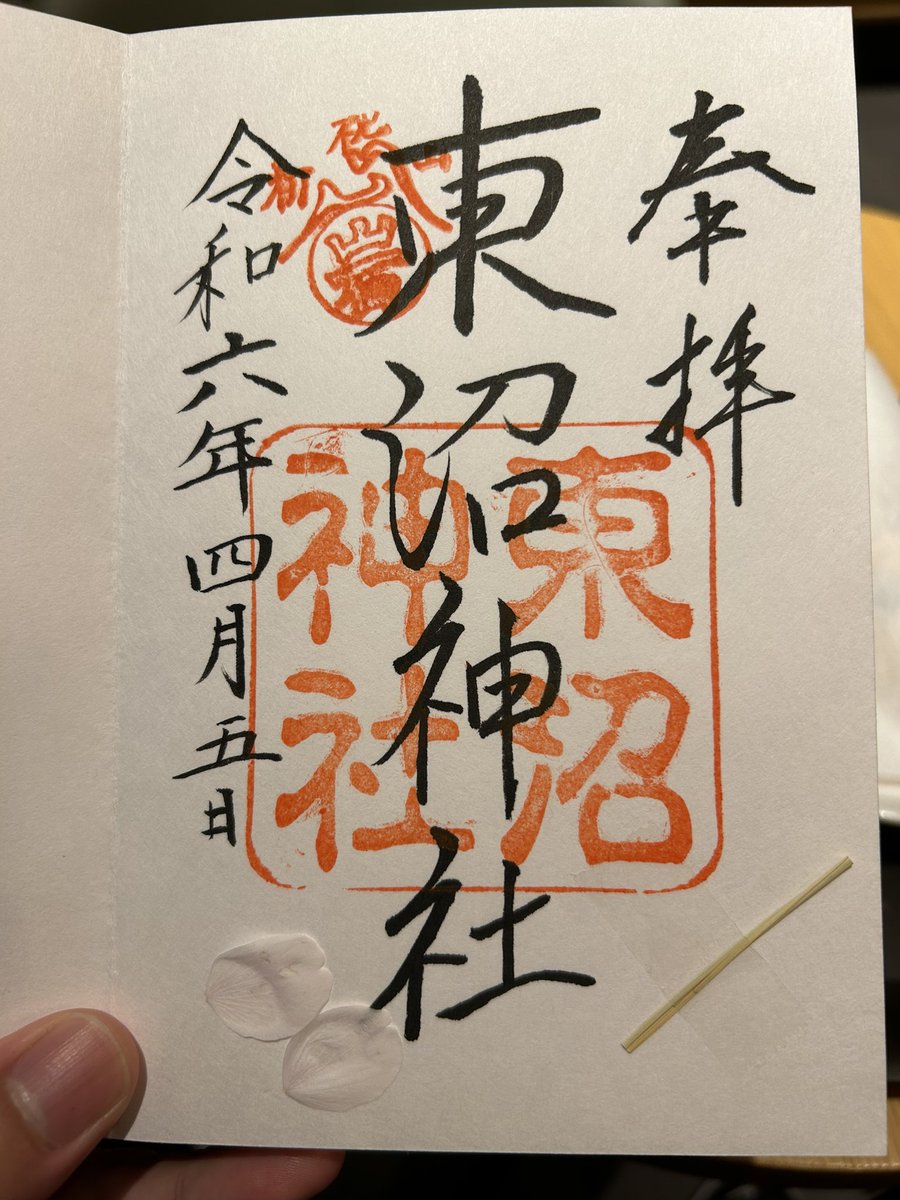 奉拝
東沼神社
令和六年四月五日
東沼
神社